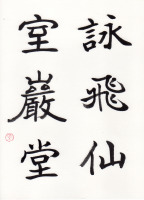 詠飛仙
室巖堂